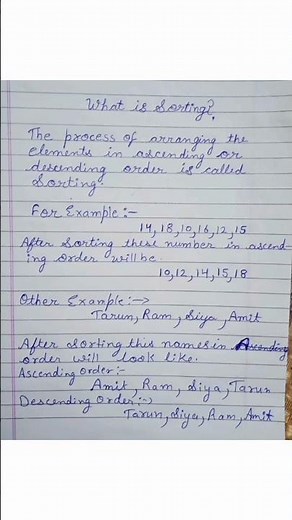 What is Sorting?
The process of arranging the
elements in ascending or
descending order is called
Sorting.
For Example:-
14, 18, 10, 16, 12, 15
After Sorting these number in ascend-
ing order will be.
10, 12, 14, 15, 18
Other Example:->
Tarun, Ram, Siya, Amit
After sorting this names in Ascending
order will look like.
Ascending Order:-
Amit, Ram, Siya, Tarun
Descending Order:->
Tarun, Siya, Ram, Amit